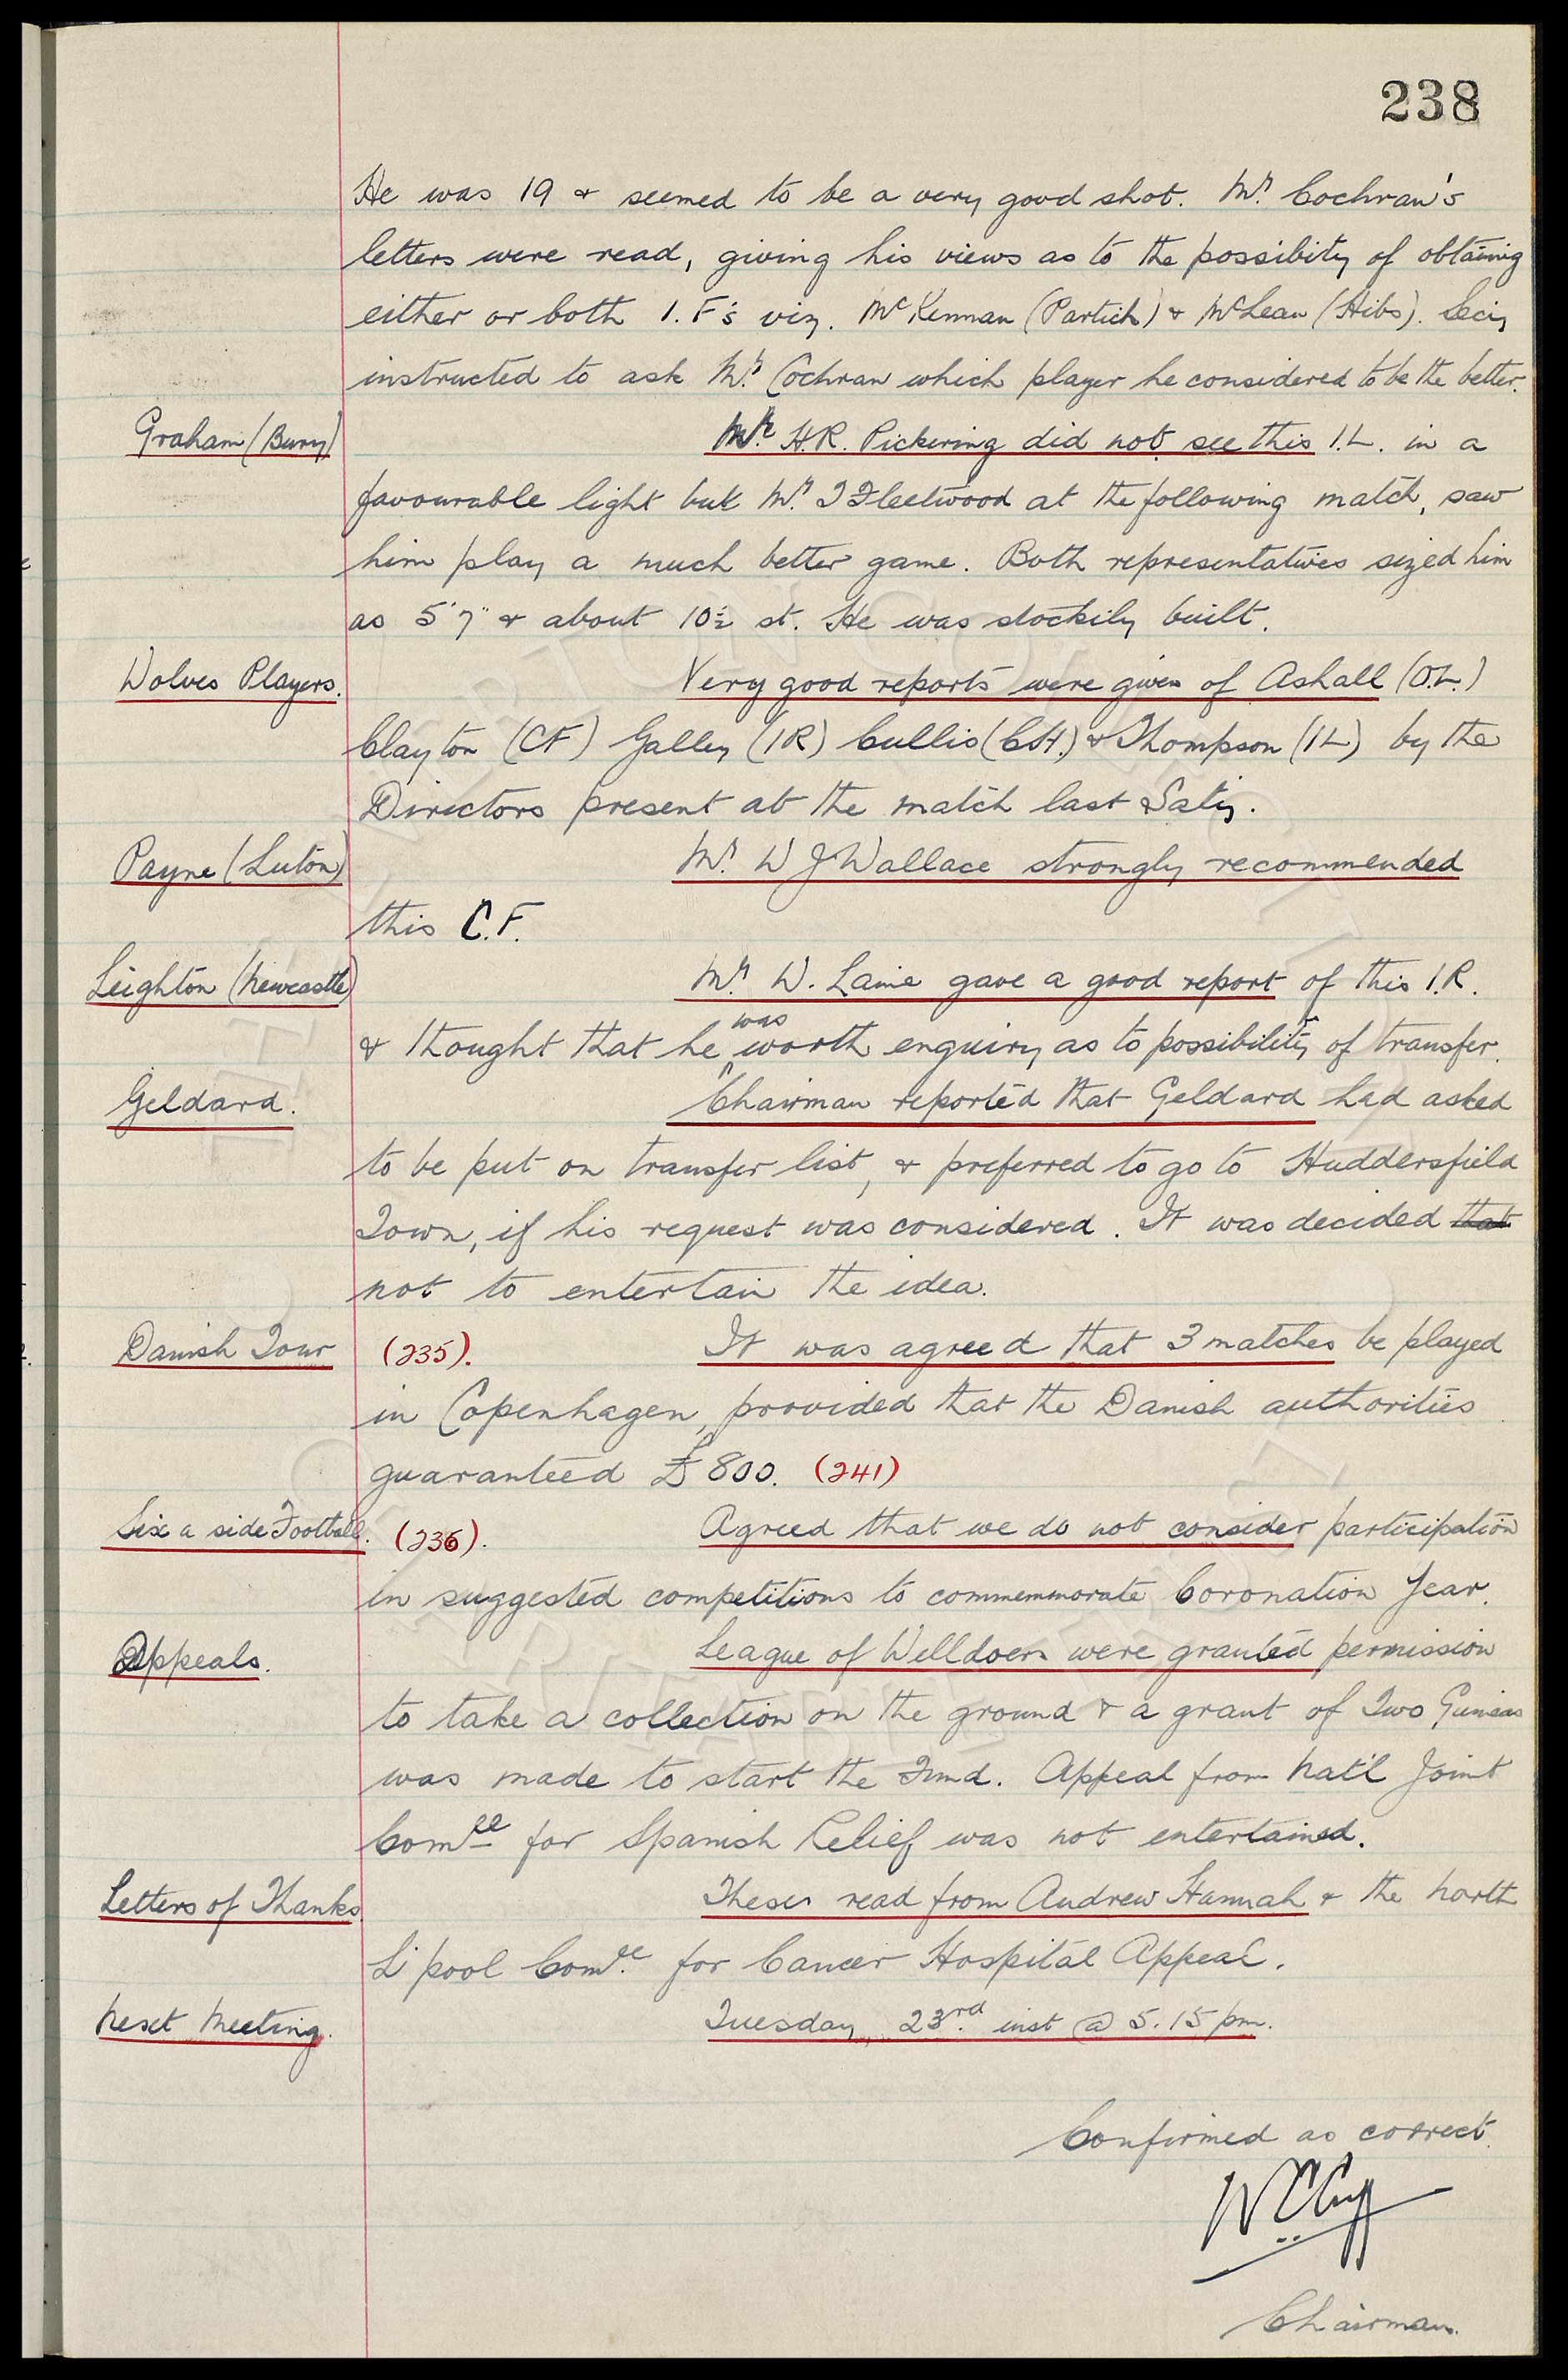 238
He was 19 & seemed to be a very good shot. Mr. Cochran's
letters were read, giving his views as to the possibity of obtaining
either or both I.F's viz. McKennan (Partick) & McLean (Hibs). Secy
instructed to ask Mr. Cochran which player he considered to be the better.
Graham (Bury) Mr. H.R. Pickering did not see this I.L. in a
favourable light but Mr. T Fleetwood at the following match, saw
him play a much better game. Both representatives sized him
as 5'7" & about 10½ st. He was stockily built.
Wolves Players. Very good reports were given of Ashall (O.L.)
Clayton (CF) Galley (IR) Cullis (C.H.) & Thompson (IL) by the
Directors present at the match last Saty.
Payne (Luton) Mr. W J Wallace strongly recommended
this C.F.
Leighton (Newcastle) Mr. W. Laine gave a good report of this I.R.
& thought that he was worth enquiry as to possibility of transfer.
Geldard. Chairman reported that Geldard had asked
to be put on transfer list, & preferred to go to Huddersfield
Town, if his request was considered. It was decided that
not to entertain the idea.
Danish Tour (235). It was agreed that 3 matches be played
in Copenhagen, provided that the Danish authorities
guaranteed £800. (241)
Six a side Football. (236). Agreed that we do not consider participation
in suggested competitions to commemmorate Coronation Year.
Appeals. League of Welldoers were granted permission
to take a collection on the ground & a grant of Two Guineas
was made to start the Fund. Appeal from Nat'l Joint
Comee for Spanish Relief was not entertained.
Letters of Thanks These read from Andrew Hannah & the North
L'pool Comee. for Cancer Hospital Appeal.
Next Meeting. Tuesday, 23rd. inst @ 5.15 pm.
Confirmed as correct.
W C Cuff
Chairman.